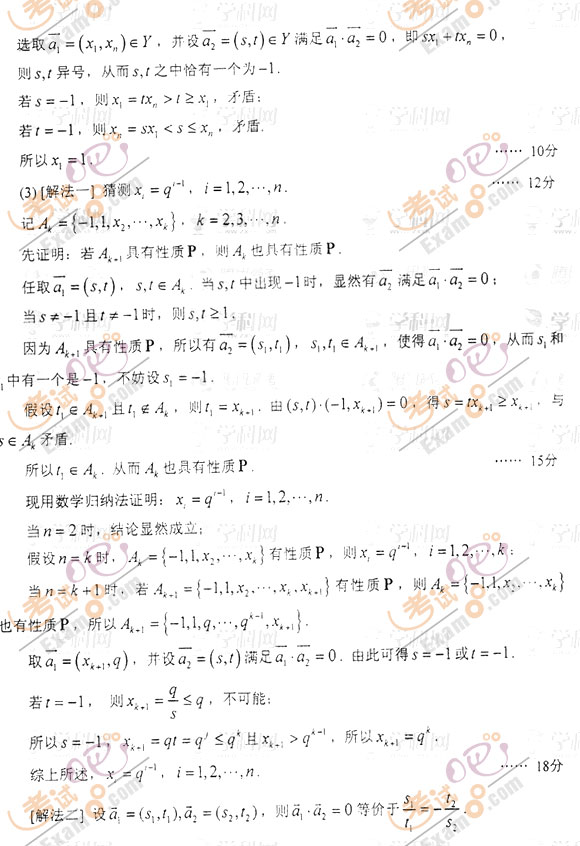 选取a₁=(x₁,xₙ)∈Y，并设a₂=(s,t)∈Y满足a₁·a₂=0，即sx₁+txₙ=0，
则s,t异号，从而s,t之中恰有一个为-1.
若s=-1，则x₁=txₙ>t≥x₁，矛盾；
若t=-1，则xₙ=sx₁<s≤xₙ，矛盾.
所以x₁=1. ……10分
(3) [解法一] 猜测xᵢ=qⁱ⁻¹，i=1,2,⋯,n. ……12分
记Aₖ={-1,1,x₂,⋯,xₖ}，k=2,3,⋯,n.
先证明：若Aₖ₊₁具有性质P，则Aₖ也具有性质P.
任取a₁=(s,t)，s,t∈Aₖ. 当s,t中出现-1时，显然有a₂满足a₁·a₂=0；
当s≠-1且t≠-1时，则s,t≥1.
因为Aₖ₊₁具有性质P，所以有a₂=(s₁,t₁)，s₁,t₁∈Aₖ₊₁，使得a₁·a₂=0，从而s₁和
₁中有一个是-1，不妨设s₁=-1.
假设t₁∈Aₖ₊₁且t₁∉Aₖ，则t₁=xₖ₊₁. 由(s,t)·(-1,xₖ₊₁)=0，得s=txₖ₊₁≥xₖ₊₁，与
s∈Aₖ矛盾.
所以t₁∈Aₖ. 从而Aₖ也具有性质P. ……15分
现用数学归纳法证明：xᵢ=qⁱ⁻¹，i=1,2,⋯,n.
当n=2时，结论显然成立；
假设n=k时，Aₖ={-1,1,x₂,⋯,xₖ}有性质P，则xᵢ=qⁱ⁻¹，i=1,2,⋯,k；
当n=k+1时，若Aₖ₊₁={-1,1,x₂,⋯,xₖ,xₖ₊₁}有性质P，则Aₖ={-1,1,x₂,⋯,xₖ}
也有性质P，所以Aₖ₊₁={-1,1,q,⋯,qᵏ⁻¹,xₖ₊₁}.
取a₁=(xₖ₊₁,q)，并设a₂=(s,t)满足a₁·a₂=0. 由此可得s=-1或t=-1.
若t=-1，则xₖ₊₁=q/s≤q，不可能；
所以s=-1，xₖ₊₁=qt=qʲ≤qᵏ且xₖ₊₁>qᵏ⁻¹，所以xₖ₊₁=qᵏ.
综上所述，xᵢ=qⁱ⁻¹，i=1,2,⋯,n. ……18分
[解法二] 设a₁=(s₁,t₁),a₂=(s₂,t₂)，则a₁·a₂=0等价于s₁/t₁=-t₂/s₂.